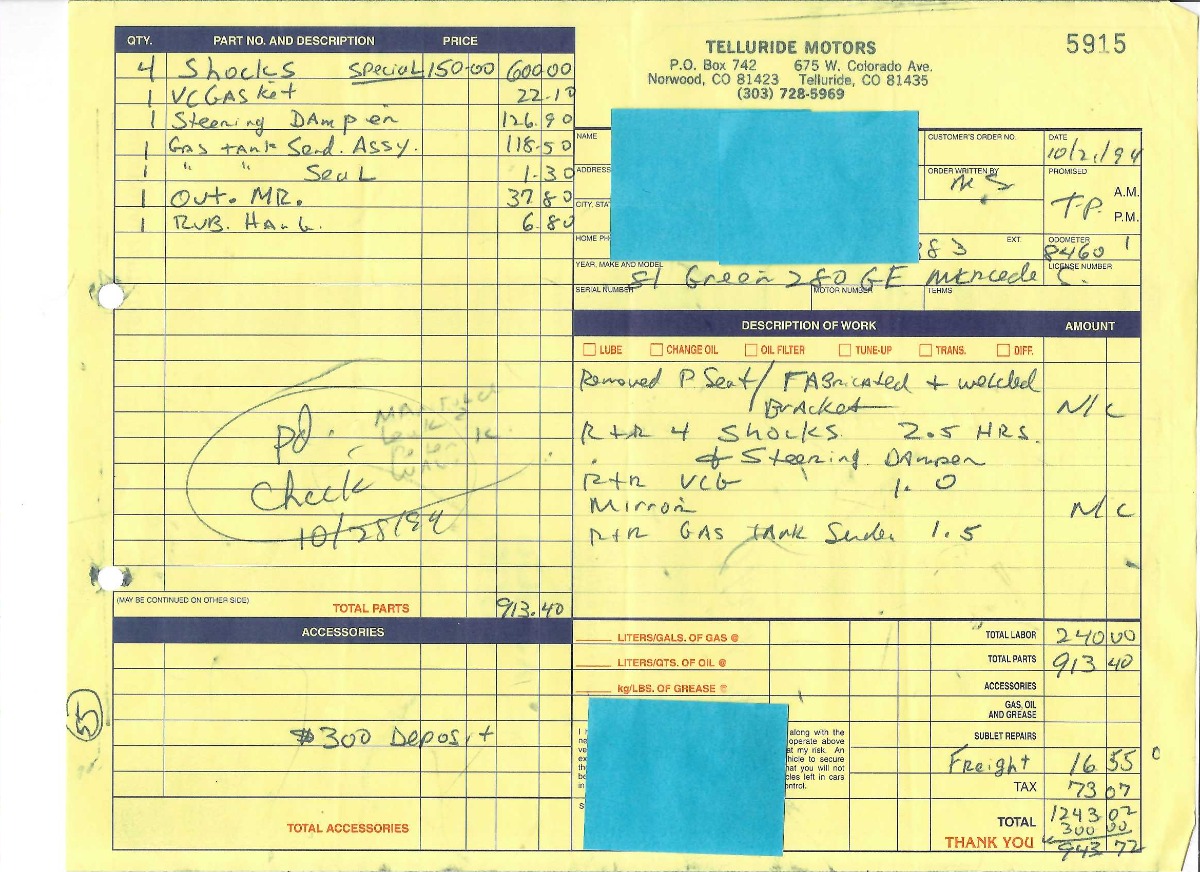 QTY. PART NO. AND DESCRIPTION PRICE
4 Shocks special 150.00 600.00
1 VC Gasket 22.10
1 Steering Dampen 126.90
1 Gas tank Send. Assy. 118.50
1 " " Seal 1.30
1 Out. MR. 37 80
1 Rub. 6.80
pd.
check
10/28/94
(MAY BE CONTINUED ON OTHER SIDE) TOTAL PARTS 913.40
ACCESSORIES
$300 Deposit
TOTAL ACCESSORIES
55
5915
TELLURIDE MOTORS
P.O. Box 742 675 W. Colorado Ave.
Norwood, CO 81423 Telluride, CO 81435
(303) 728-5969
NAME CUSTOMER'S ORDER NO. DATE
10/21/94
ADDRESS ORDER WRITTEN BY PROMISED
MS
T.P. A.M.
CITY, STAT P.M.
HOME PH EXT. ODOMETER
83 8460
YEAR, MAKE AND MODEL LICENSE NUMBER
81 Green 280 GE Mercedes
SERIAL NUMBER MOTOR NUMBER TERMS
DESCRIPTION OF WORK AMOUNT
LUBE CHANGE OIL OIL FILTER TUNE-UP TRANS. DIFF.
Removed P Seat/ FABricated + welded
Bracket N/C
R+R 4 Shocks 2.5 HRS.
+ Steering Dampen
R+R VCG 1.0
Mirror N/C
R+R GAS TANK Sender 1.5
LITERS/GALS. OF GAS @
LITERS/QTS. OF OIL @
kg/LBS. OF GREASE @
TOTAL LABOR 240 00
TOTAL PARTS 913 40
ACCESSORIES
GAS, OIL
AND GREASE
SUBLET REPAIRS
Freight 16 55
TAX 73 07
TOTAL 1243 02
300 00
THANK YOU 943 72
along with the
operate above
at my risk. An
hicle to secure
hat you will not
cles left in cars
ontrol.